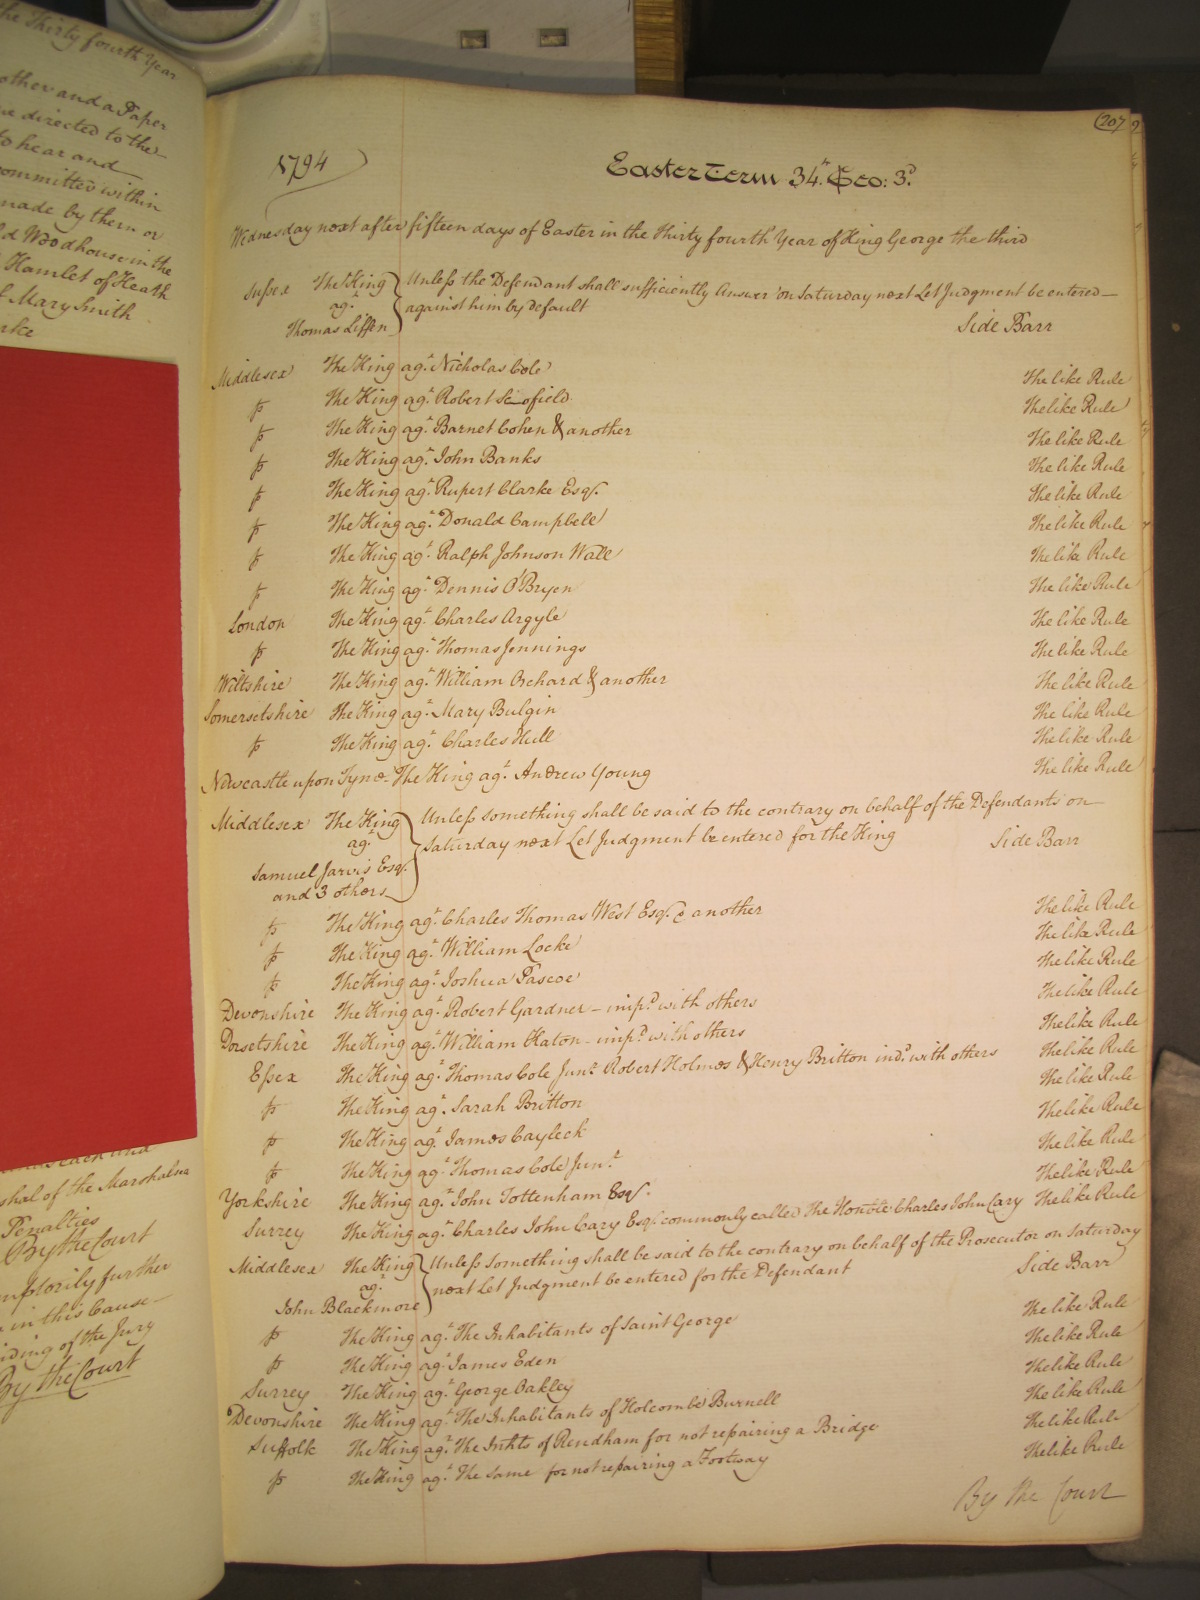 the Thirty fourth Year
other and a Paper
directed to the
to hear and
Committee within
made by them or
Woodhouse in the
Hamlet of Heath
Mary Smith
shal of the Marshalsea
Penalties
By the Court
further
in this Cause
of the Jury
By the Court
207
1794
Easter Term 34th Geo: 3d
Wednesday next after fifteen days of Easter in the Thirty fourth Year of King George the third
Sussex The King agt Thomas Liffen Unless the Defendant shall sufficiently Answer on Saturday next Let Judgment be entered
against him by default
Side Barr
Middlesex The King agt Nicholas Cole The like Rule
p The King agt Robert The like Rule
p The King agt Barnet Cohen & another The like Rule
p The King agt John Banks The like Rule
p The King agt Rupert Clarke Esqr. The like Rule
p The King agt Donald Campbell The like Rule
p The King agt Ralph Johnson Wall The like Rule
p The King agt Dennis O'Bryen The like Rule
London The King agt Charles Argyle The like Rule
p The King agt Thomas Jennings The like Rule
Wiltshire The King agt William Orchard & another The like Rule
Somersetshire The King agt Mary Bulgin The like Rule
p The King agt Charles Hull The like Rule
Newcastle upon Tyne The King agt Andrew Young The like Rule
Middlesex The King agt Samuel Jarvis Esqr. and 3 others Unless something shall be said to the contrary on behalf of the Defendants on
Saturday next Let Judgment be entered for the King Side Barr
p The King agt Charles Thomas West Esqr. & another The like Rule
p The King agt William Locke The like Rule
p The King agt Joshua Pascoe The like Rule
Devonshire The King agt Robert Gardner - impd with others The like Rule
Dorsetshire The King agt William Haton - impd with others The like Rule
Essex The King agt Thomas Cole Junr Robert Holmes & Henry Britton indd with others The like Rule
p The King agt Sarah Britton The like Rule
p The King agt James Cayleck The like Rule
p The King agt Thomas Cole Junr The like Rule
Yorkshire The King agt John Tottenham Esqr. The like Rule
Surrey The King agt Charles John Cary Esqr commonly called The Honble Charles John Cary The like Rule
Middlesex The King agt John Blackmore Unless something shall be said to the contrary on behalf of the Prosecutor on Saturday
next Let Judgment be entered for the Defendant Side Barr
p The King agt The Inhabitants of Saint George The like Rule
p The King agt James Eden The like Rule
Surrey The King agt George Oakley The like Rule
Devonshire The King agt The Inhabitants of Holcombe Burnell The like Rule
Suffolk The King agt The Inhts of Rendham for not repairing a Bridge The like Rule
p The King agt The same for not repairing a Footway The like Rule
By the Court